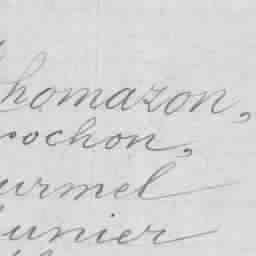 homazon,
ochon,
urmel
unier